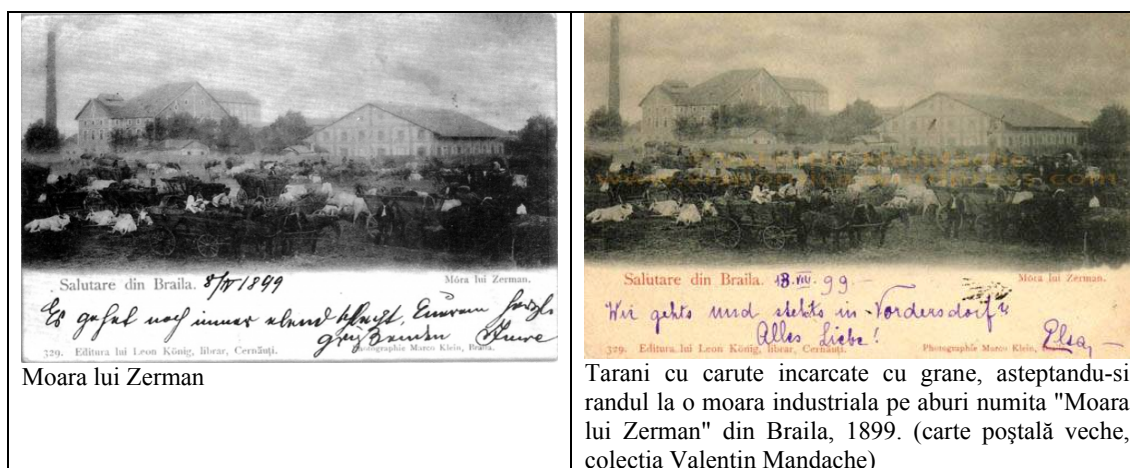 Salutare din Braila. 8/IV 1899
Móra lui Zerman.
Es gehet noch immer elend schlecht, Euerem
grüßenden
329. Editura lui Leon König, librar, Cernăuți.
Photographie Marco Klein, Braila.
Moara lui Zerman
Salutare din Braila. 13.VIII.99.-
Móra lui Zerman.
Wie gehts und stehts in Vordersdorf?
Alles Liebe!
Elsa,
329. Editura lui Leon König, librar, Cernăuți.
Photographie Marco Klein,
Tarani cu carute incarcate cu grane, asteptandu-si
randul la o moara industriala pe aburi numita "Moara
lui Zerman" din Braila, 1899. (carte poştală veche,
colectia Valentin Mandache)